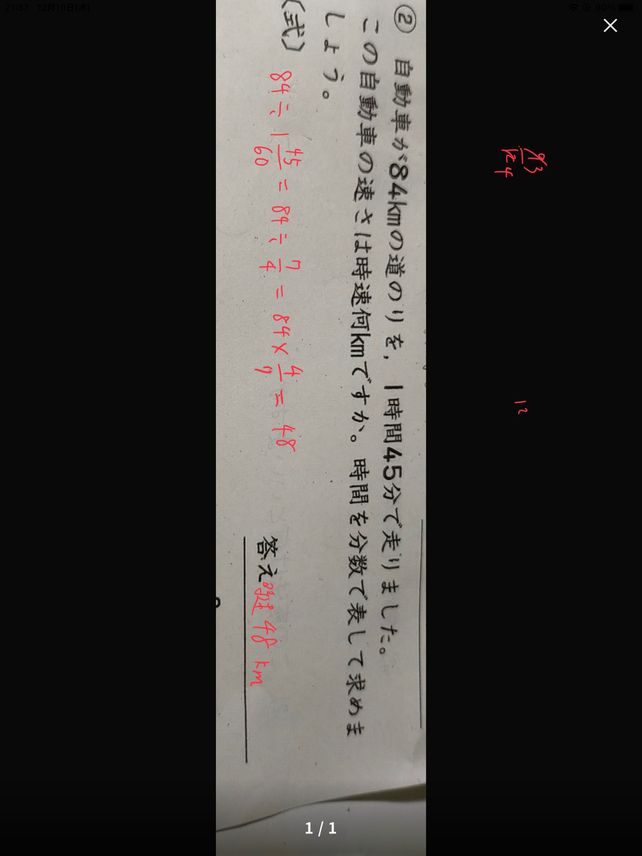 ② 自動車が84kmの道のりを，1時間45分で走りました。
この自動車の速さは時速何kmですか。時間を分数で表して求めま
しょう。
(式)
84÷1 45/60 = 84÷7/4 = 84×4/7 = 48
答え 時速 48 km
12
1 / 1